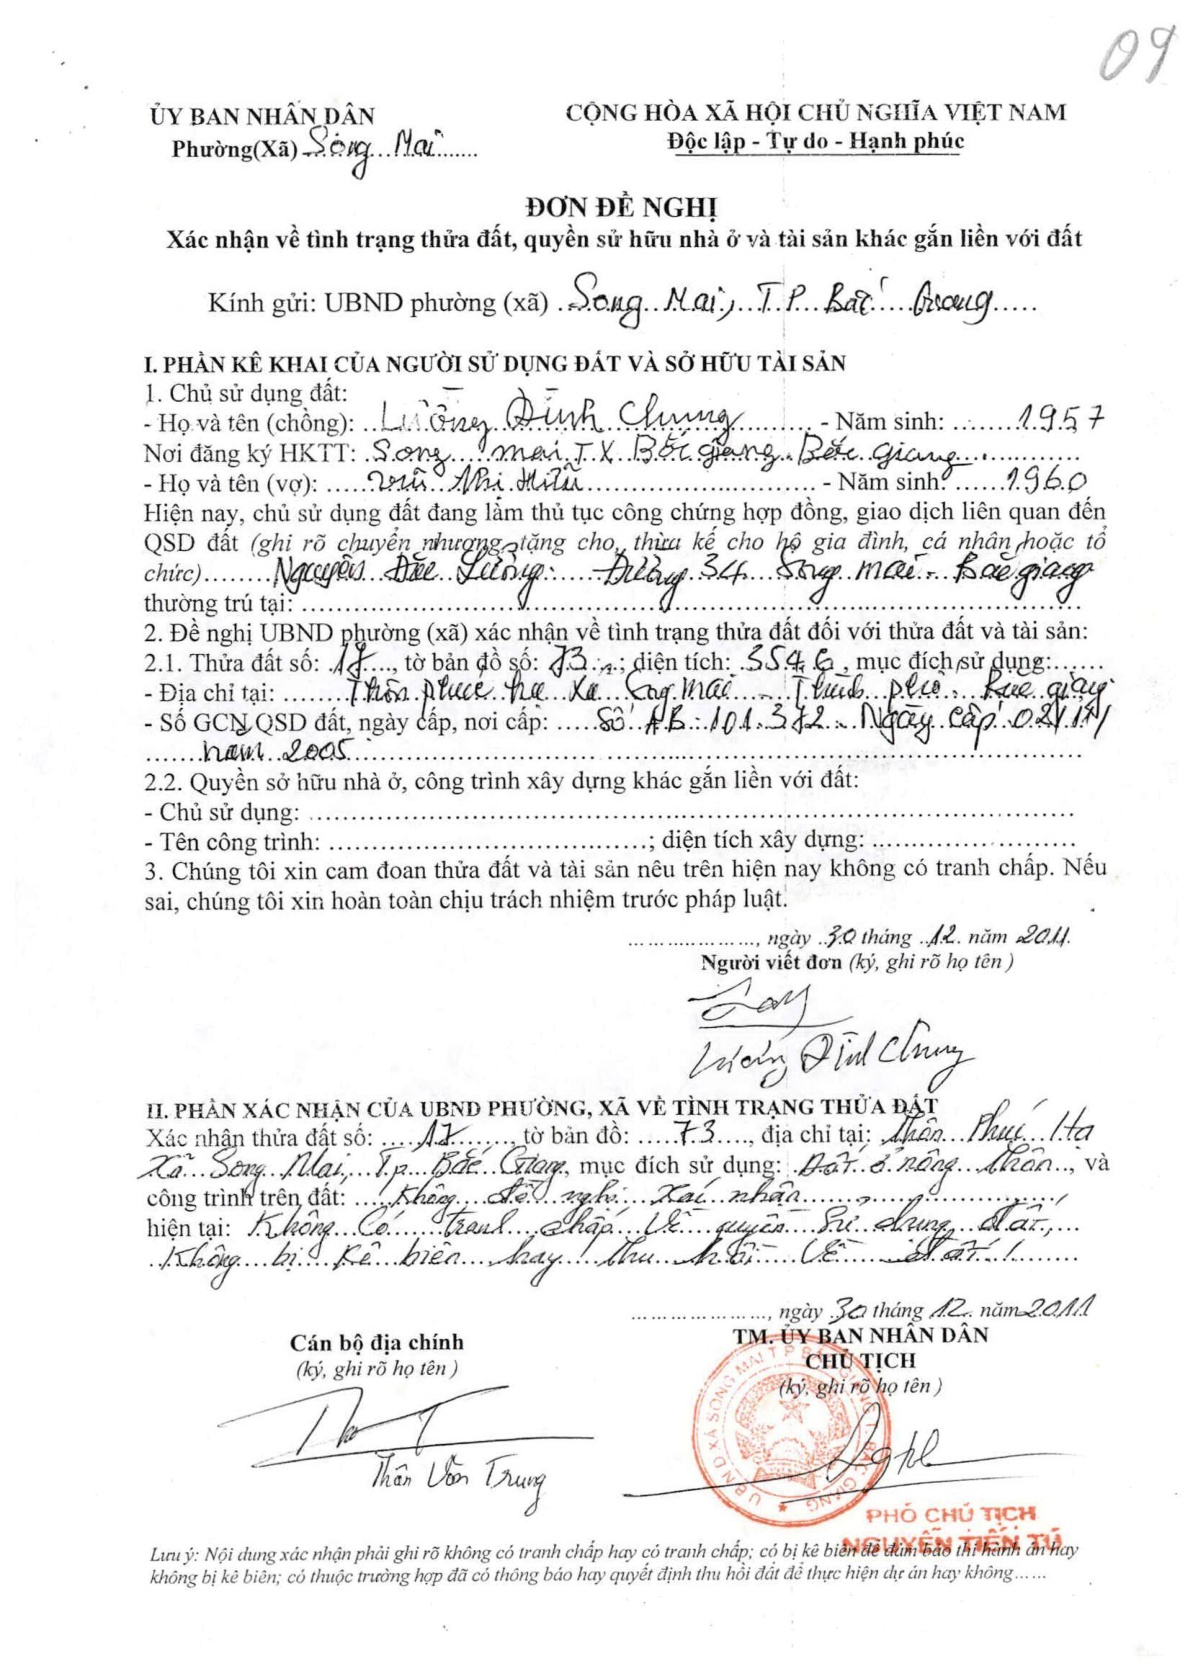 09
ỦY BAN NHÂN DÂN
Phường(Xã) Song Mai
CỘNG HÒA XÃ HỘI CHỦ NGHĨA VIỆT NAM
Độc lập - Tự do - Hạnh phúc
ĐƠN ĐỀ NGHỊ
Xác nhận về tình trạng thửa đất, quyền sử hữu nhà ở và tài sản khác gắn liền với đất
Kính gửi: UBND phường (xã) Song Mai, T.P Bắc Giang
I. PHẦN KÊ KHAI CỦA NGƯỜI SỬ DỤNG ĐẤT VÀ SỞ HỮU TÀI SẢN
1. Chủ sử dụng đất:
- Họ và tên (chồng): Lường Đình Chung - Năm sinh: 1957
Nơi đăng ký HKTT: Song mai T.X Bắc giang Bắc giang
- Họ và tên (vợ): Thị - Năm sinh: 1960
Hiện nay, chủ sử dụng đất đang làm thủ tục công chứng hợp đồng, giao dịch liên quan đến
QSD đất (ghi rõ chuyển nhượng, tặng cho, thừa kế cho hộ gia đình, cá nhân hoặc tổ
chức) Nguyễn Đắc Lường. Đường 34 Song mai - Bắc giang
thường trú tại:
2. Đề nghị UBND phường (xã) xác nhận về tình trạng thửa đất đối với thửa đất và tài sản:
2.1. Thửa đất số: 17, tờ bản đồ số: 73; diện tích: 354,6, mục đích sử dụng:
- Địa chỉ tại: Thôn phúc hạ xã Song mai - Thành phố Bắc giang
- Số GCN QSD đất, ngày cấp, nơi cấp: Số AB 101372 - Ngày cấp
năm 2005
2.2. Quyền sở hữu nhà ở, công trình xây dựng khác gắn liền với đất:
- Chủ sử dụng:
- Tên công trình: ; diện tích xây dựng:
3. Chúng tôi xin cam đoan thửa đất và tài sản nêu trên hiện nay không có tranh chấp. Nếu
sai, chúng tôi xin hoàn toàn chịu trách nhiệm trước pháp luật.
, ngày 30 tháng 12 năm 2011.
Người viết đơn (ký, ghi rõ họ tên )
Lường Đình Chung
II. PHẦN XÁC NHẬN CỦA UBND PHƯỜNG, XÃ VỀ TÌNH TRẠNG THỬA ĐẤT
Xác nhận thửa đất số: 17, tờ bản đồ: 73, địa chỉ tại: Thôn Phúc Hạ
Xã Song Mai, T.p Bắc Giang, mục đích sử dụng: Đất ở nông thôn, và
công trình trên đất: Không đề nghị xác nhận
hiện tại: Không có tranh chấp về quyền sử dụng đất,
Không bị kê biên hay thu hồi về đất!
, ngày 30 tháng 12 năm 2011
Cán bộ địa chính
(ký, ghi rõ họ tên )
Thân Văn Trung
TM. ỦY BAN NHÂN DÂN
CHỦ TỊCH
(ký, ghi rõ họ tên )
U B N D XÃ SONG MAI T P BẮC GIANG T. BẮC GIANG
PHÓ CHỦ TỊCH
NGUYỄN TIẾN TÚ
Lưu ý: Nội dung xác nhận phải ghi rõ không có tranh chấp hay có tranh chấp; có bị kê biên để đảm bảo thi hành án hay
không bị kê biên; có thuộc trường hợp đã có thông báo hay quyết định thu hồi đất để thực hiện dự án hay không......